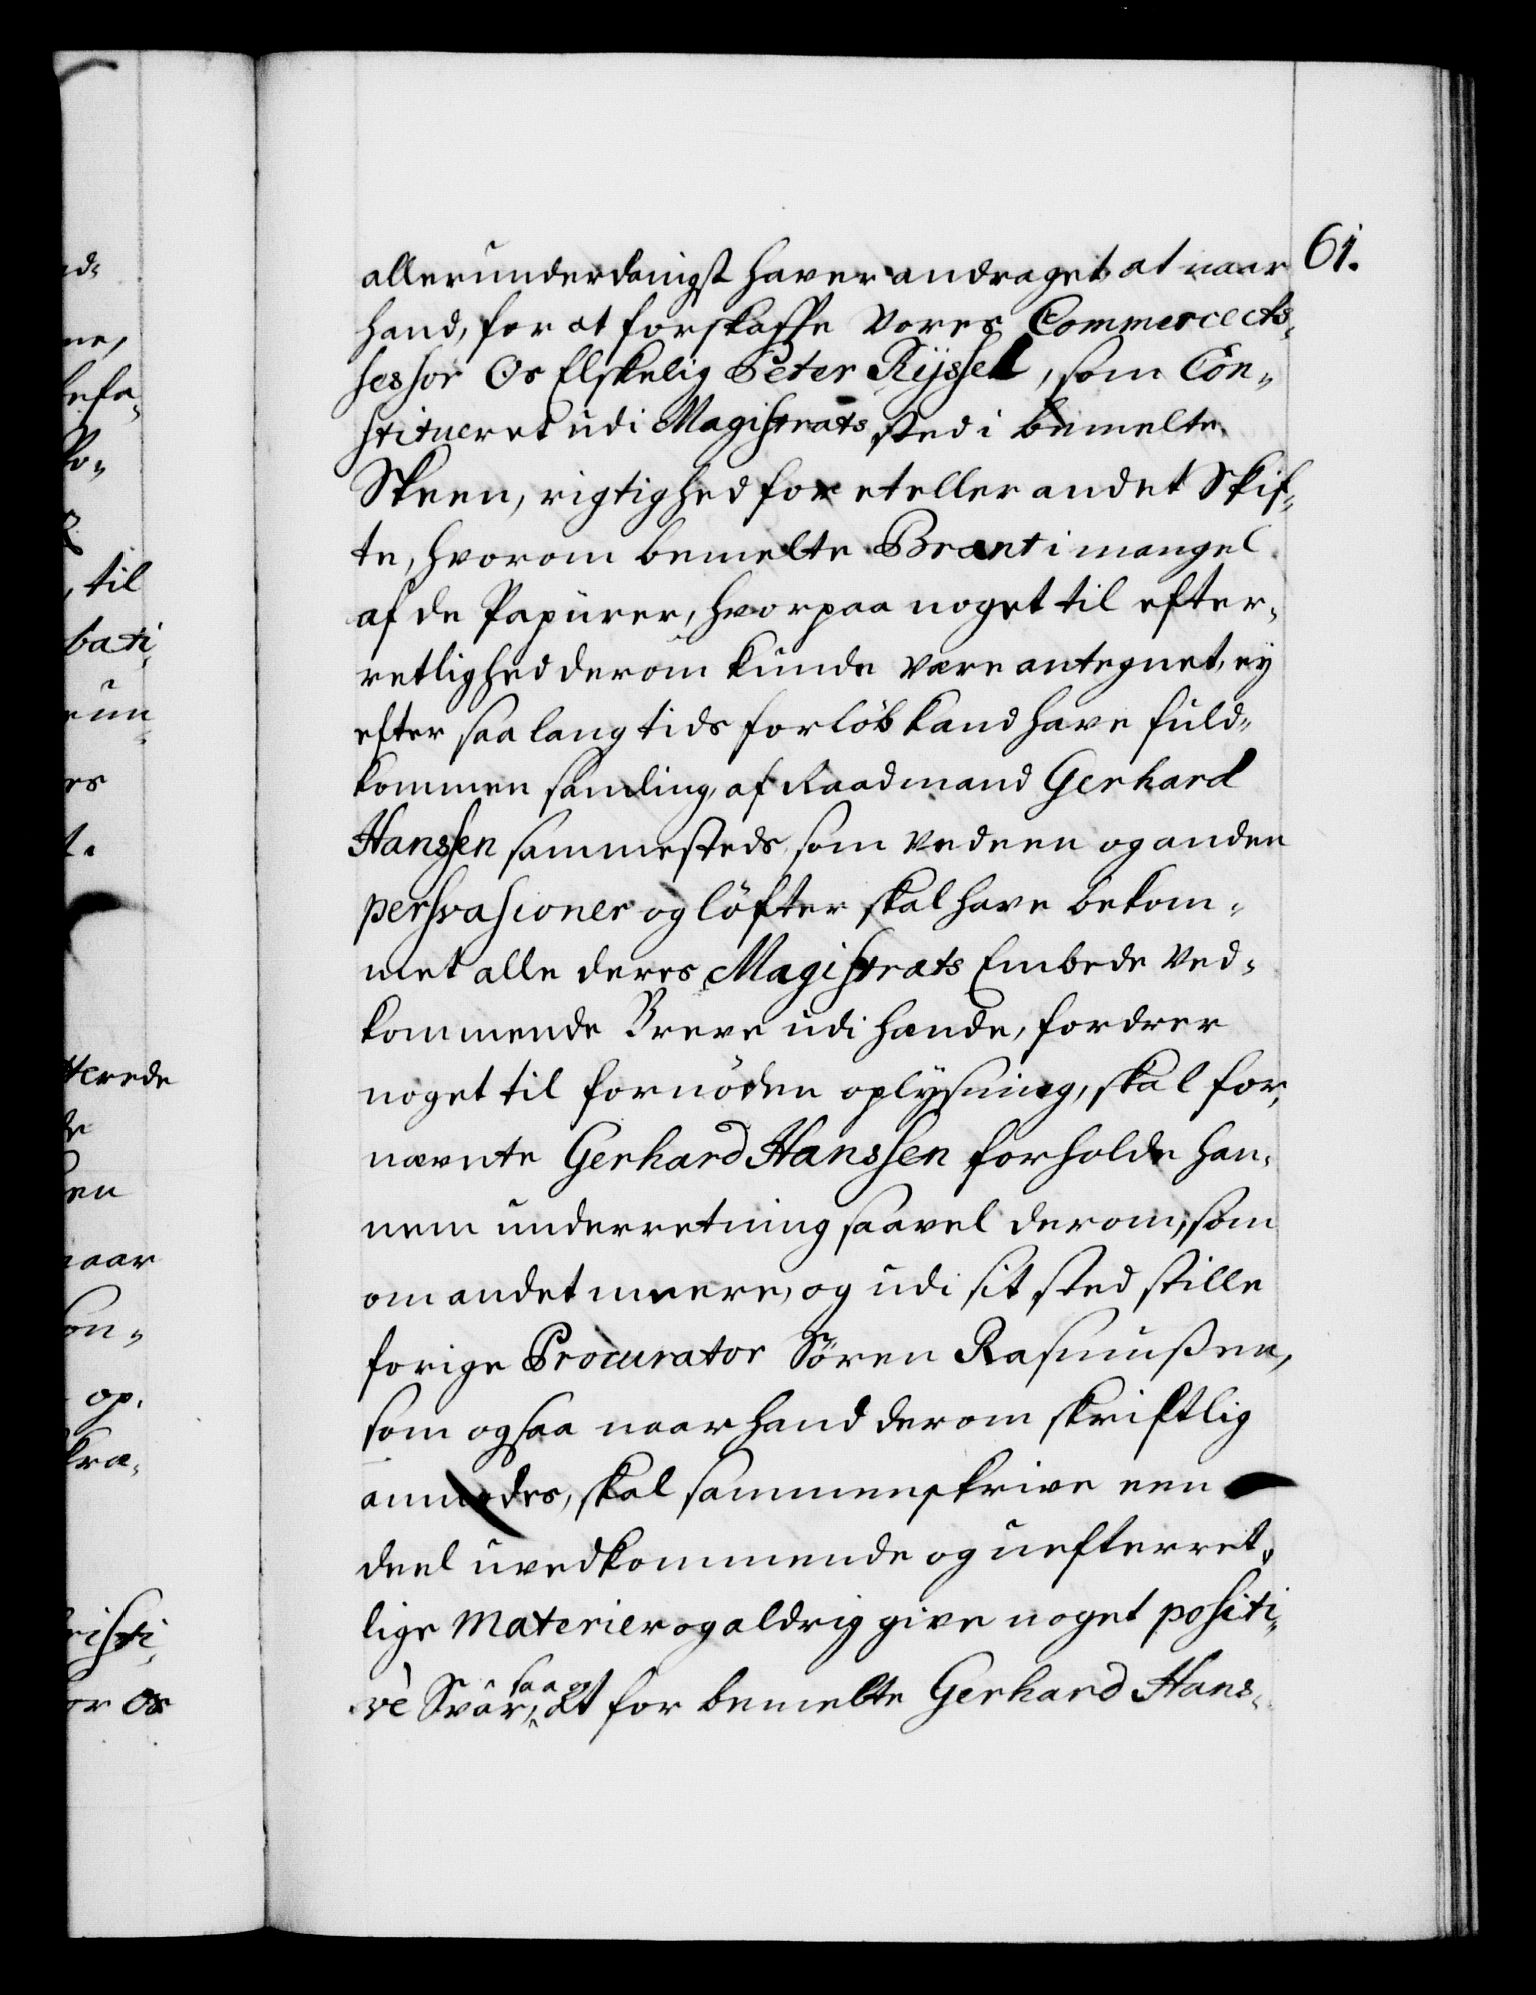 61.
allerunderdanigst haver andraget, at naar
hand, for at forskaffe Vores Commerce As¬
sessor Os Elskelig Peter Rÿssel, som Con¬
stitueret udi Magistrats sted i bemelte
Skeen, rigtighed for et eller andet Skif¬
te, hvorom bemelte Brant i mangel
af de Papiirer, hvorpaa noget til efter¬
retlighed derom kunde være antegnet, ey
efter saa lang tids forløb kand have fuld¬
kommen samling, af Raadmand Gerhard
Hanssen sammesteds, som Ved een og anden
persvasioner og løfter skal have bekom¬
met alle deres Magistrats Embede Ved¬
kommende Breve udi hænde, fordrer
noget til fornøden oplysning, skal for¬
nævnte Gerhard Hanssen forholde han¬
nem underretning saavel derom, som
om andet meere, og udi sit sted stille
forige Procurator Søren Rasmussen,
som ogsaa naar hand derom skriftlig
anmodes, skal sammenskrive een
deel uvedkommende og uefterret¬
lige Materier og aldrig give noget positi¬
ve Svar, saa at for bemelte Gerhard Hans¬
nd¬
til
bati
un
es
terede
en
naar
on¬
op¬
kra¬
risti
or Os